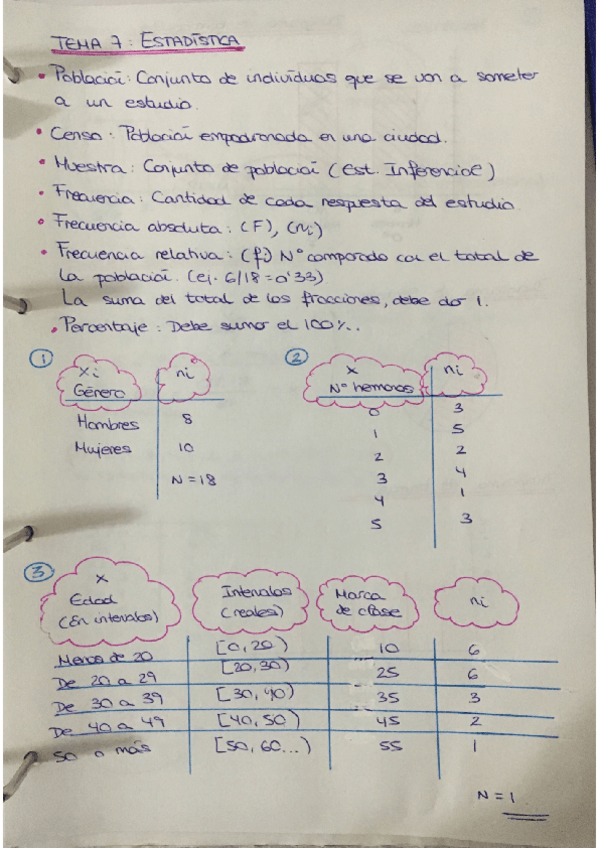 TEMA 7: ESTADÍSTICA
• Població: Conjunto de individuos que se van a someter
a un estudio.
• Censo: Població empadronada en una ciudad.
• Muestra: Conjunto de població (Est. Inferencial)
• Frecuencia: Cantidad de cada respuesta del estudio
• Frecuencia absoluta: (F), (ni)
• Frecuencia relativa: (f) Nº comparado con el total de
la població. (ej. 6/18 = 0'33)
La suma del total de las fracciones, debe dar 1.
• Porcentaje: Debe sumar el 100%.
① xi Género ni
Hombres 8
Mujeres 10
N = 18
② x Nº hermanos ni
0 3
1 5
2 2
3 4
4 1
5 3
③ x Edad (En intervalos) Intervalos (reales) Marca de clase ni
Menos de 20 [0, 20) 10 6
De 20 a 29 [20, 30) 25 6
De 30 a 39 [30, 40) 35 3
De 40 a 49 [40, 50) 45 2
50 o más [50, 60...) 55 1
N = 1